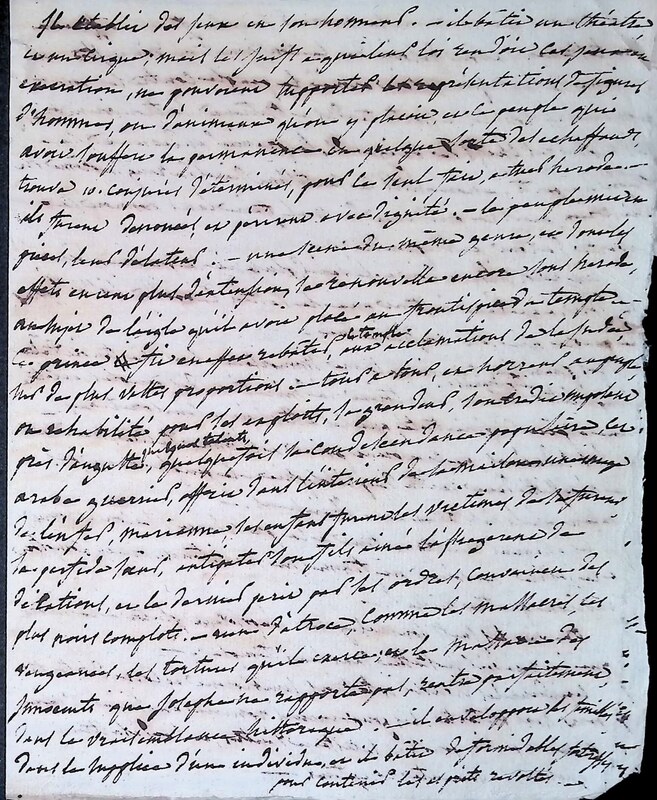 il établit des jeux en son honneur. – il bâtit un théâtre
un cirque, mais les juifs a qui les
execration, ne pouvoient supporter les représentations de figures
d'hommes, ou d'animaux qu'on y plaçoit et ce peuple qui
avoit souffert la permanence en quelque sorte des echaffauds,
trouva 10. conjurés déterminés, pour le seul fait, a tuer herode –
ils furent denoncés, et périrent avec dignité. – le peuple mit en
pieces, leurs délateurs. – une scene du même genre, et dont les
effets eurent plus d'extension, se renouvella encore sous herode,
au sujet de l'aigle qu'il avoit placé au frontispice du temple –
ce prince fit en effet rebâtir, le temple aux acclamations de la judée,
sur de plus vastes proportions – tour a tour, en horreur au peuple
ou rehabilité pour ses exploits, sa grandeur, son credit
près d'auguste, quelquefois sa condescendance populaire cet
arabe guerrier, offrit dans l'intérieur de sa maison une image
de l'enfer, mariamne, ses enfans furent les victimes de la fureur
de la perfide sœur, antipater son fils aîné
délations, et ce dernier périt par ses ordres, convaincu des
plus noirs complots. – rien d'atroce, comme les massacres les
vengeances, les tortures qu'il exerce, et le massacre des
Innocents que Josephe ne rapporte pas, rentre parfaitement
dans la vraisemblance historique. – il enveloppoit les familles
dans le supplice d'un individu, et il bâtit de formidables
pour contenir les esprits revoltés –